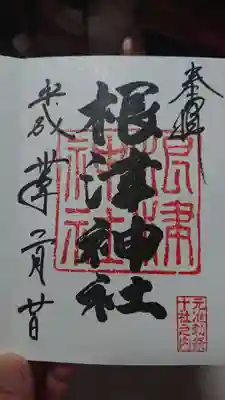 奉拝
根津神社
根津
神社
元准勅祭
十社之内
平成卅年二月廿日